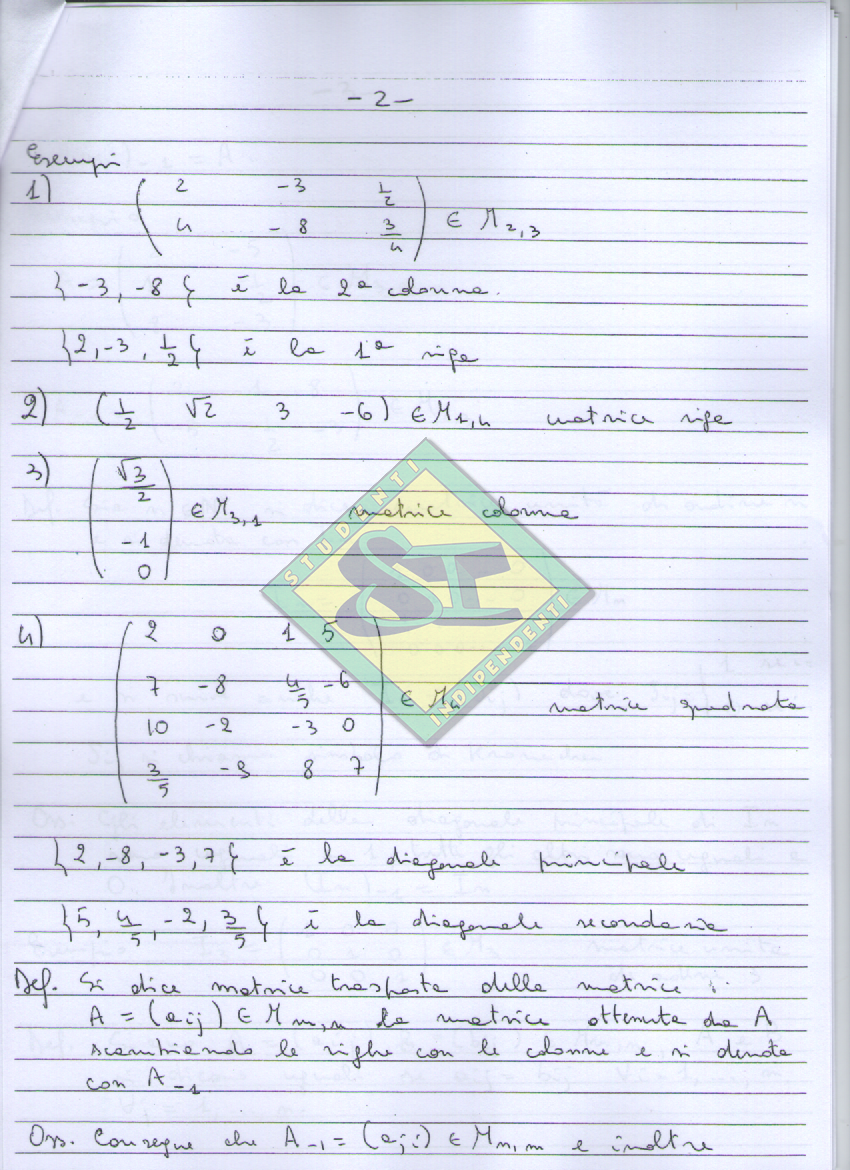 - 2 -
Esempi
1) ( 2 -3 1/2
4 -8 3/4 ) ∈ M2,3
{-3, -8} è la 2ª colonna.
{2, -3, 1/2} è la 1ª riga
2) (1/2 √2 3 -6) ∈ M1,4 matrice riga
3) ( √3/2
-1
0 ) ∈ M3,1 matrice colonna
4) ( 2 0 1 5
7 -8 4/5 -6
10 -2 -3 0
3/5 -3 8 7 ) ∈ M4 matrice quadrata
STUDENTI
SI
INDIPENDENTI
{2, -8, -3, 7} è la diagonale principale
{5, 4/5, -2, 3/5} è la diagonale secondaria
Def. Si dice matrice trasposta della matrice
A = (aij) ∈ Mm,n la matrice ottenuta da A
scambiando le righe con le colonne e si denota
con A-1
Oss. Consegue che A-1 = (aji) ∈ Mn,m e inoltre